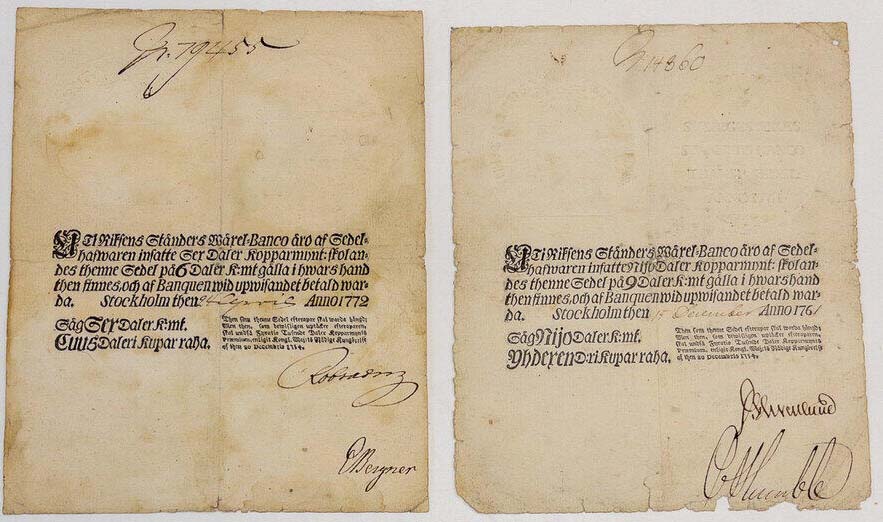 N. 79455
UTi Riksens Ständers Wäxel-Banco äro af Sedel-
hafwaren insatte Sex Daler Kopparmynt: skolan-
des thenne Sedel på 6 Daler K:mt gälla i hwars hand
then finnes, och af Banquen wid upwisandet betald war-
da. Stockholm then 24 Aprilis Anno 1772
Säg Sex Daler K:mt.
Cuus Daleri Kupar raha.
Then som thenne Sedel efterapar skal warda hängd;
Men then, som bewisligen uptäcker efteraparen,
skal undfå Fyratio Tusende Daler Kopparmynts
Præmium, enligit Kongl. Maj:ts Nådige Kungörelse
af then 20 Decembris 1754.
CBergner
N. 14860
UTi Riksens Ständers Wäxel-Banco äro af Sedel-
hafwaren insatte Nijo Daler Kopparmynt: skolan-
des thenne Sedel på 9 Daler K:mt gälla i hwars hand
then finnes, och af Banquen wid upwisandet betald war-
da. Stockholm then 15 December Anno 1761
Säg Nijo Daler K:mt.
Yhdexen Dri Kupar raha.
Then som thenne Sedel efterapar skal warda hängd;
Men then, som bewisligen uptäcker efteraparen,
skal undfå Fyratio Tusende Daler Kopparmynts
Præmium, enligit Kongl. Maj:ts Nådige Kungörelse
af then 20 Decembris 1754.